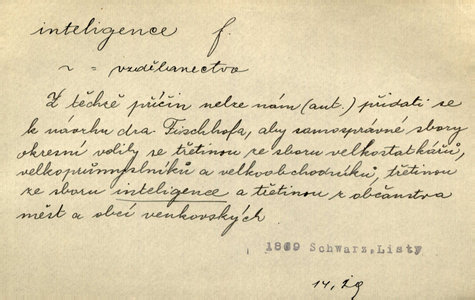 inteligence f.
~ = vzdělanectvo
Z těchže příčin nelze nám (aut.) přidati se
k návrhu dra. Fischhofa, aby samosprávné sbory
okresní volily se třetinou ze sboru velkostatkářů,
velkoprůmyslníků a velkoobchodníků, třetinou
ze sboru inteligence a třetinou z občanstva
měst a obcí venkovských.
1869 Schwarz, Listy
14, 29